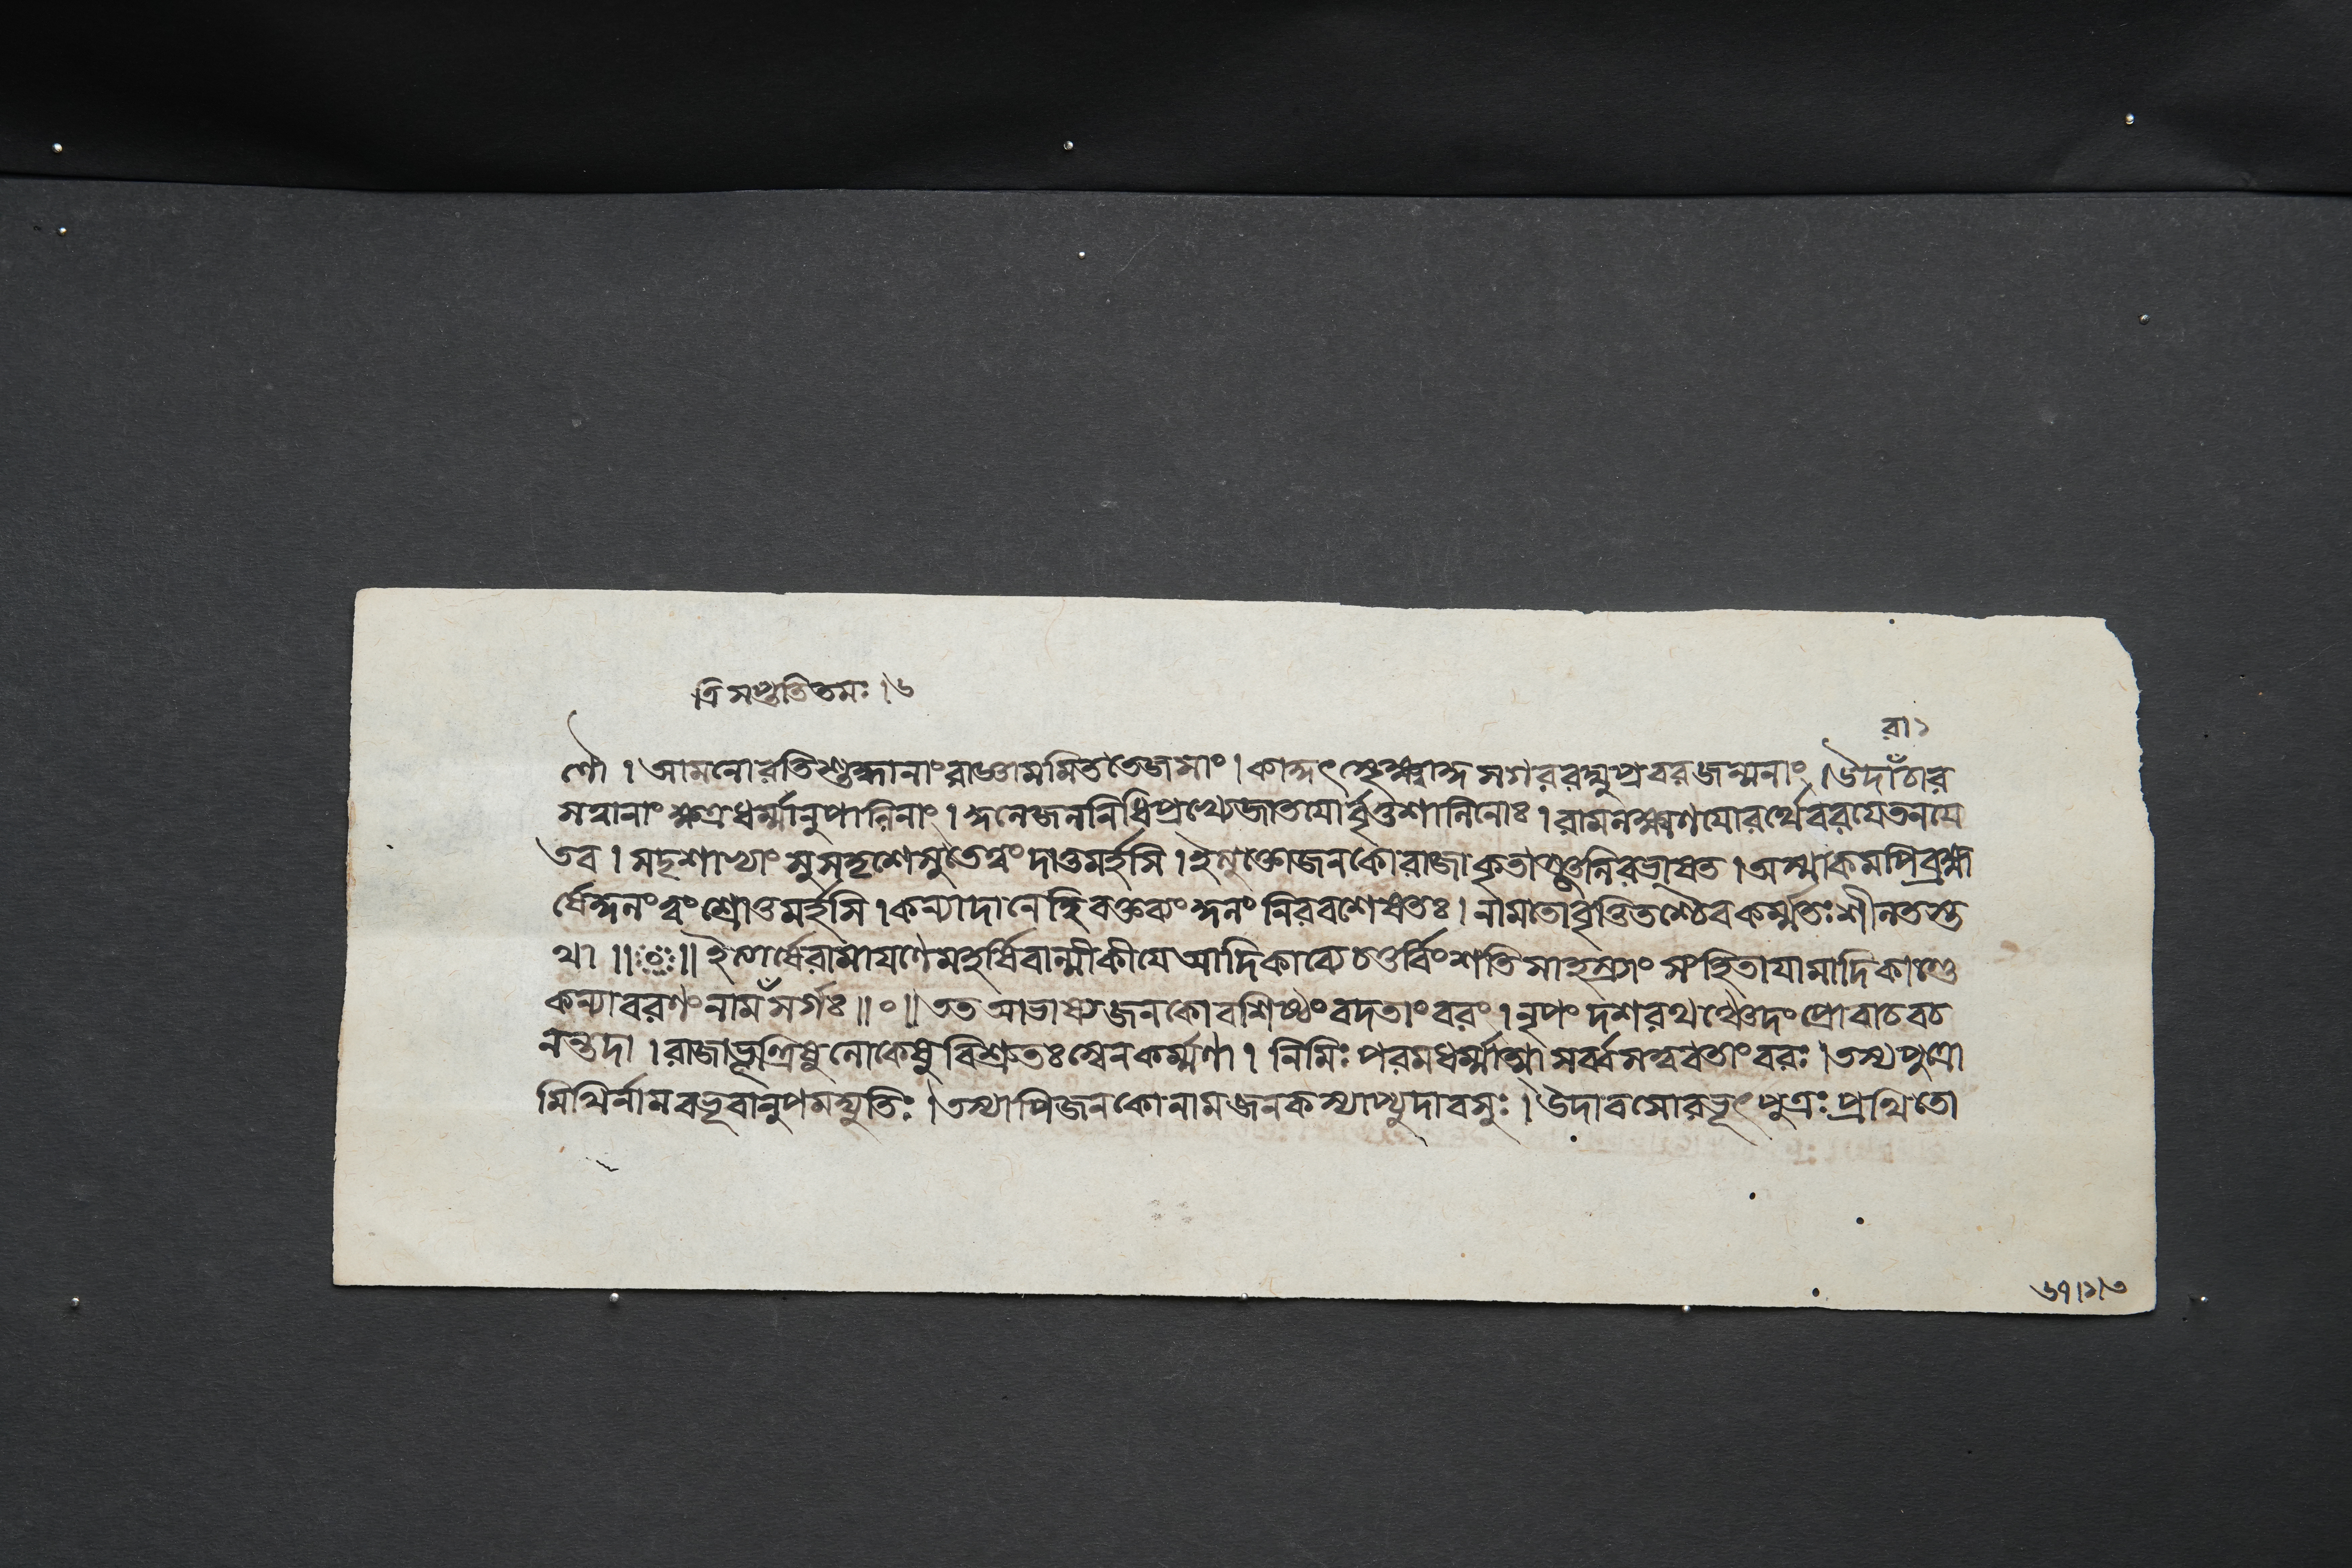 ত্রিসপ্ততিতমঃ।৬
রা১
ণৌ। আমনোরতিশুদ্ধানাং রাজ্ঞামমিততেজসাং। কাকুৎস্থেক্ষ্বাকু সগররঘুপ্রবরজন্মনাং। উদারাচার
সহানাং ক্ষত্রধর্ম্মানুপালিনাং। কুলে জলনিধিপ্রখ্যে জাতয়োর্বৃত্তশালিনোঃ। রামলক্ষ্মণয়োরর্থে বরয়ে তনয়ে
তব। সদৃশাভ্যাং সুসদৃশে সুতে ত্বং দাতুমর্হসি। ইত্যুক্তো জনকো রাজা কৃতাঞ্জলিরভাষত। অস্মাকমপি ব্রহ্ম
র্ষে কুলং ত্বং শ্রোতুমর্হসি। কন্যাদানে হি বক্তব্যং কুলং নিরবশেষতঃ। নামতো বৃত্তিতশ্চৈব কর্ম্মতঃ শীলতস্ত
থা ॥ঃ০ঃ॥ ইত্যার্ষে রামায়ণে মহর্ষিবাল্মীকীয়ে আদিকাব্যে চতুর্বিংশতিসাহস্র্যাং সংহিতায়ামাদিকাণ্ডে
কন্যাবরণং নাম সর্গঃ॥০॥ তত আভাষ্য জনকো বশিষ্ঠং বদতাং বরং। নৃপং দশরথঞ্চেদং প্রোবাচ বচ
নন্তদা। রাজাভূত্ত্রিষু লোকেষু বিশ্রুতঃ স্বেন কর্ম্মণা। নিমিঃ পরমধর্ম্মাত্মা সর্ব্বসত্ত্ববতাং বরঃ। তস্য পুত্রো
মিথির্নাম বভূবানুপমদ্যুতিঃ। তস্যাপি জনকো নাম জনকস্যাপ্যুদাবসুঃ। উদাবসোরভূৎ পুত্রঃ প্রথিতো
৬৭।১।৩